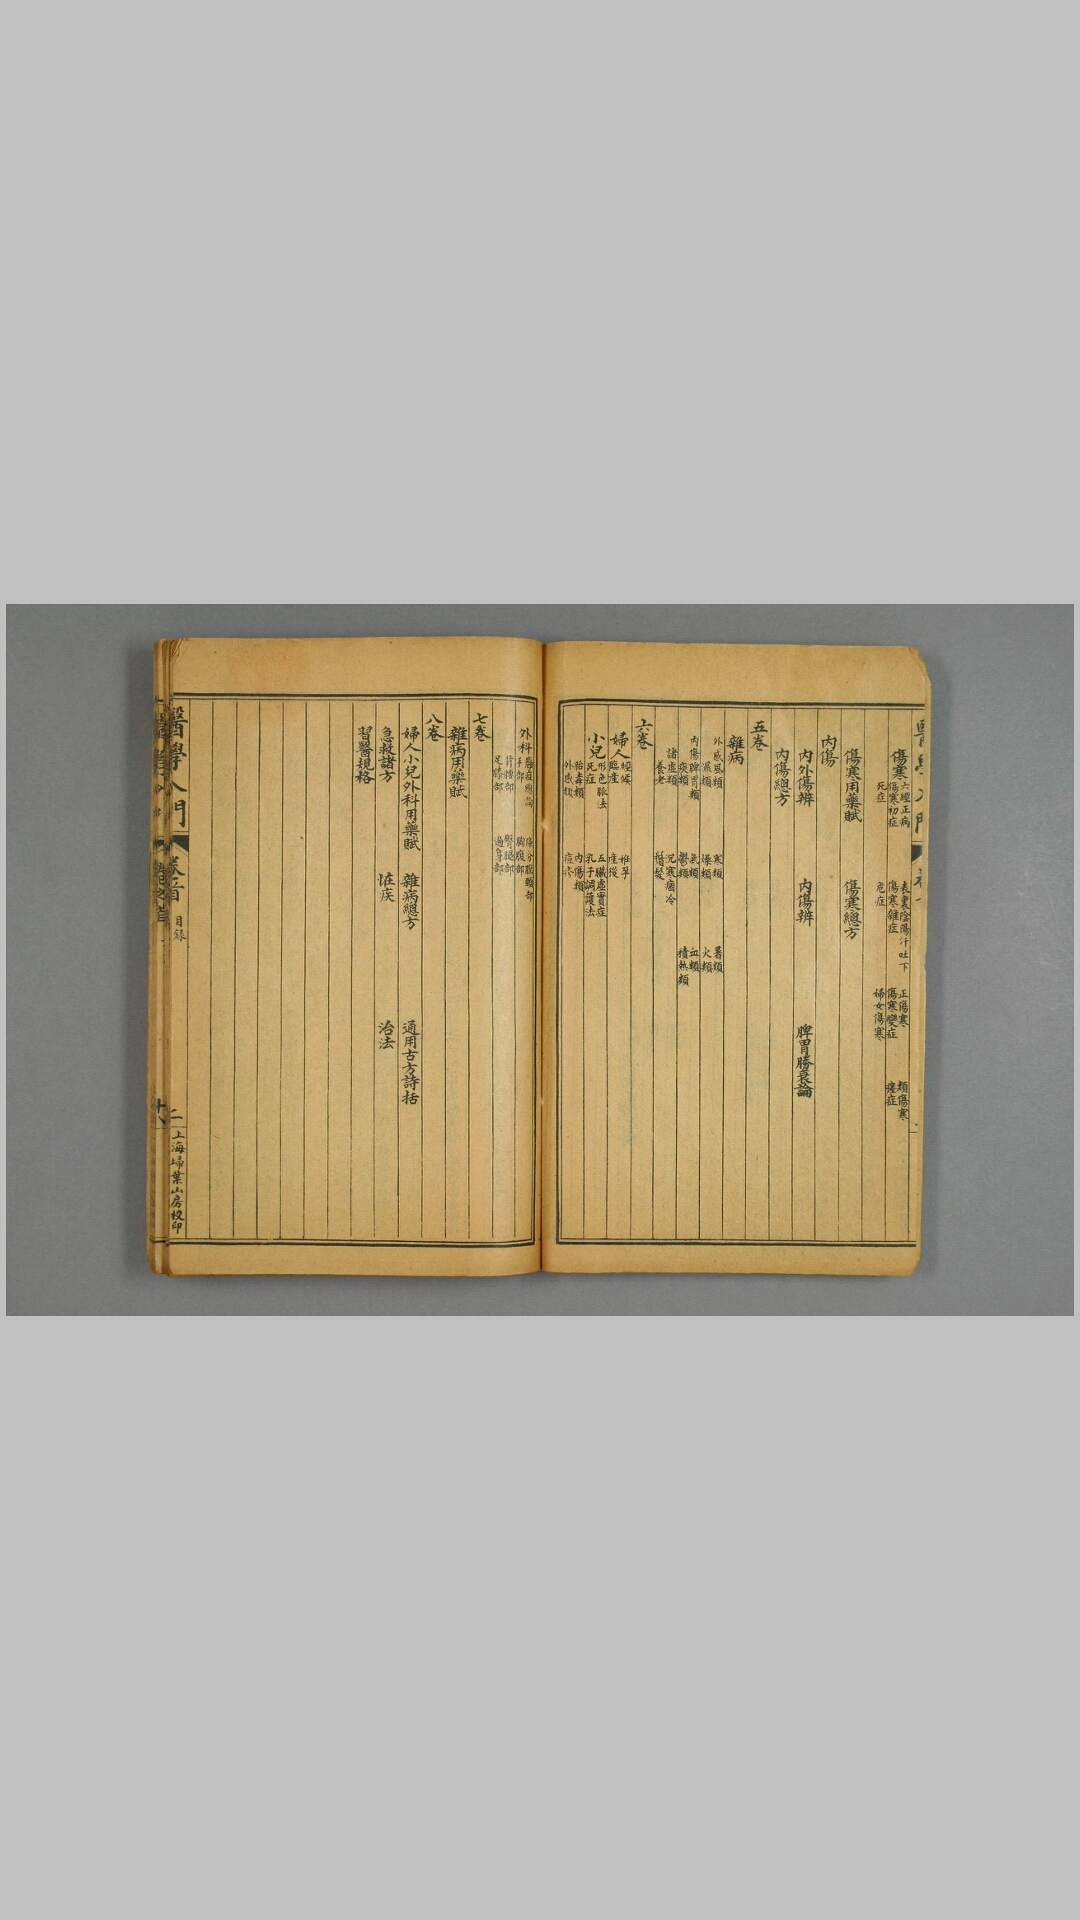 傷寒 六經正病 表裏陰陽汗吐下 正傷寒 類傷寒
傷寒初症 傷寒雜症 傷寒變症 瘥症
死症 危症 婦女傷寒
傷寒用藥賦 傷寒總方
內傷
內外傷辨 內傷辨 脾胃勝衰論
內傷總方
五卷
雜病
外感風類 寒類 暑類
濕類 燥類 火類
內傷脾胃類 氣類 血類
痰類 鬱類 積熱類
諸虛類 沉寒痼冷
養老
六卷
婦人 經候
臨產 產後
小兒 形色脈法 五臟虛實症
死症 乳子調護法
胎毒類 內傷類
外感類
外科
手部 胸腹部
背腰部 臀腿部
足膝部 遍身部
七卷
雜病用藥賦
八卷
婦人小兒外科用藥賦 雜病總方 通用古方詩括
急救諸方 怪疾 治法
習醫規格
醫學入門 卷首 目錄 二 上海埽葉山房校印